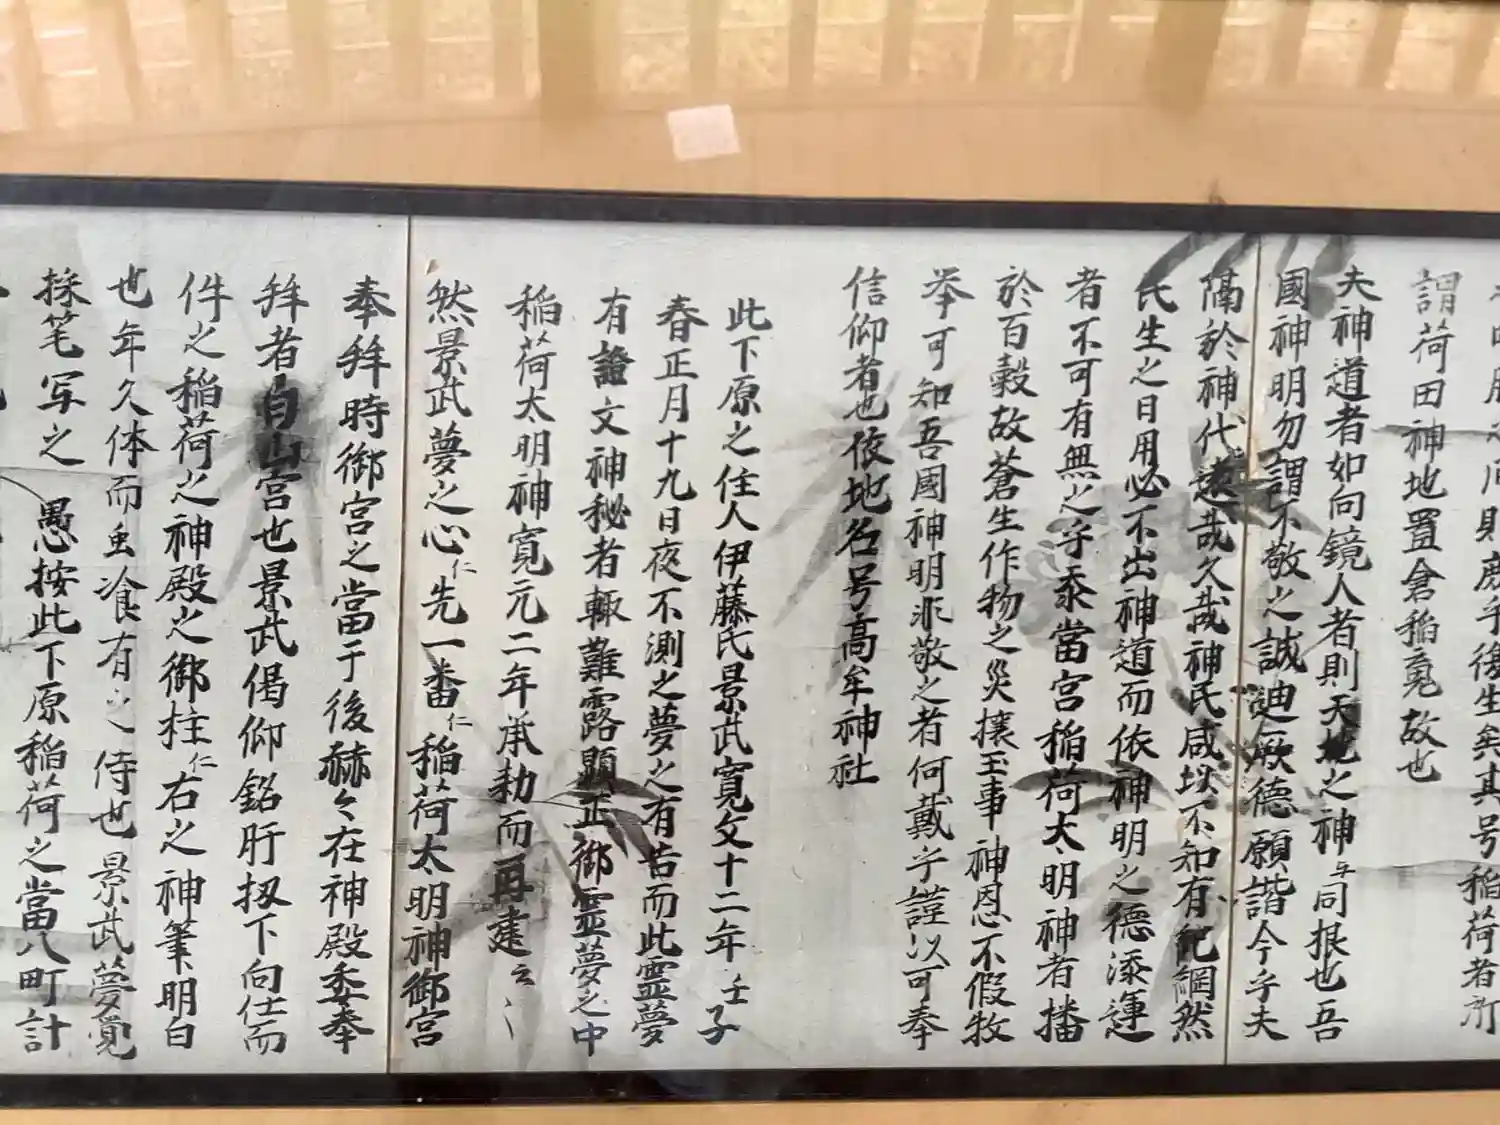 則庶乎後生矣其号稲荷者所
謂荷田神地置倉稲竟故也
夫神道者如向鏡人者則天地之神与同根也吾
國神明勿謂不敬之誠迪厥德願諧今乎夫
隔於神代遠哉久哉神民咸以不知有紀綱然
民生之日用必不出神道而依神明之德添運
者不可有無之乎黍當宮稲荷太明神者播
於百穀故蒼生作物之災攘玉事神恩不假牧
举可知吾國神明派敬之者何戴乎謹以可奉
信仰者也依地名号高牟神社
此下原之住人伊藤氏景武寛文十二年壬子
春正月十九日夜不測之夢之有告而此霊夢
有證文神秘者輙難露顕正御霊夢之中
稲荷太明神寛元二年承勅而再建云〻
然景武夢之心仁先一番仁稲荷太明神御宮
奉拜時御宮之當于後赫々在神殿委奉
拜者白山宮也景武偈仰銘肝扨下向仕而
件之稲荷之神殿之御柱仁右之神筆明白
也年久体而虫飡有之侍也景武夢覚
採笔写之 愚按此下原稲荷之當八町計